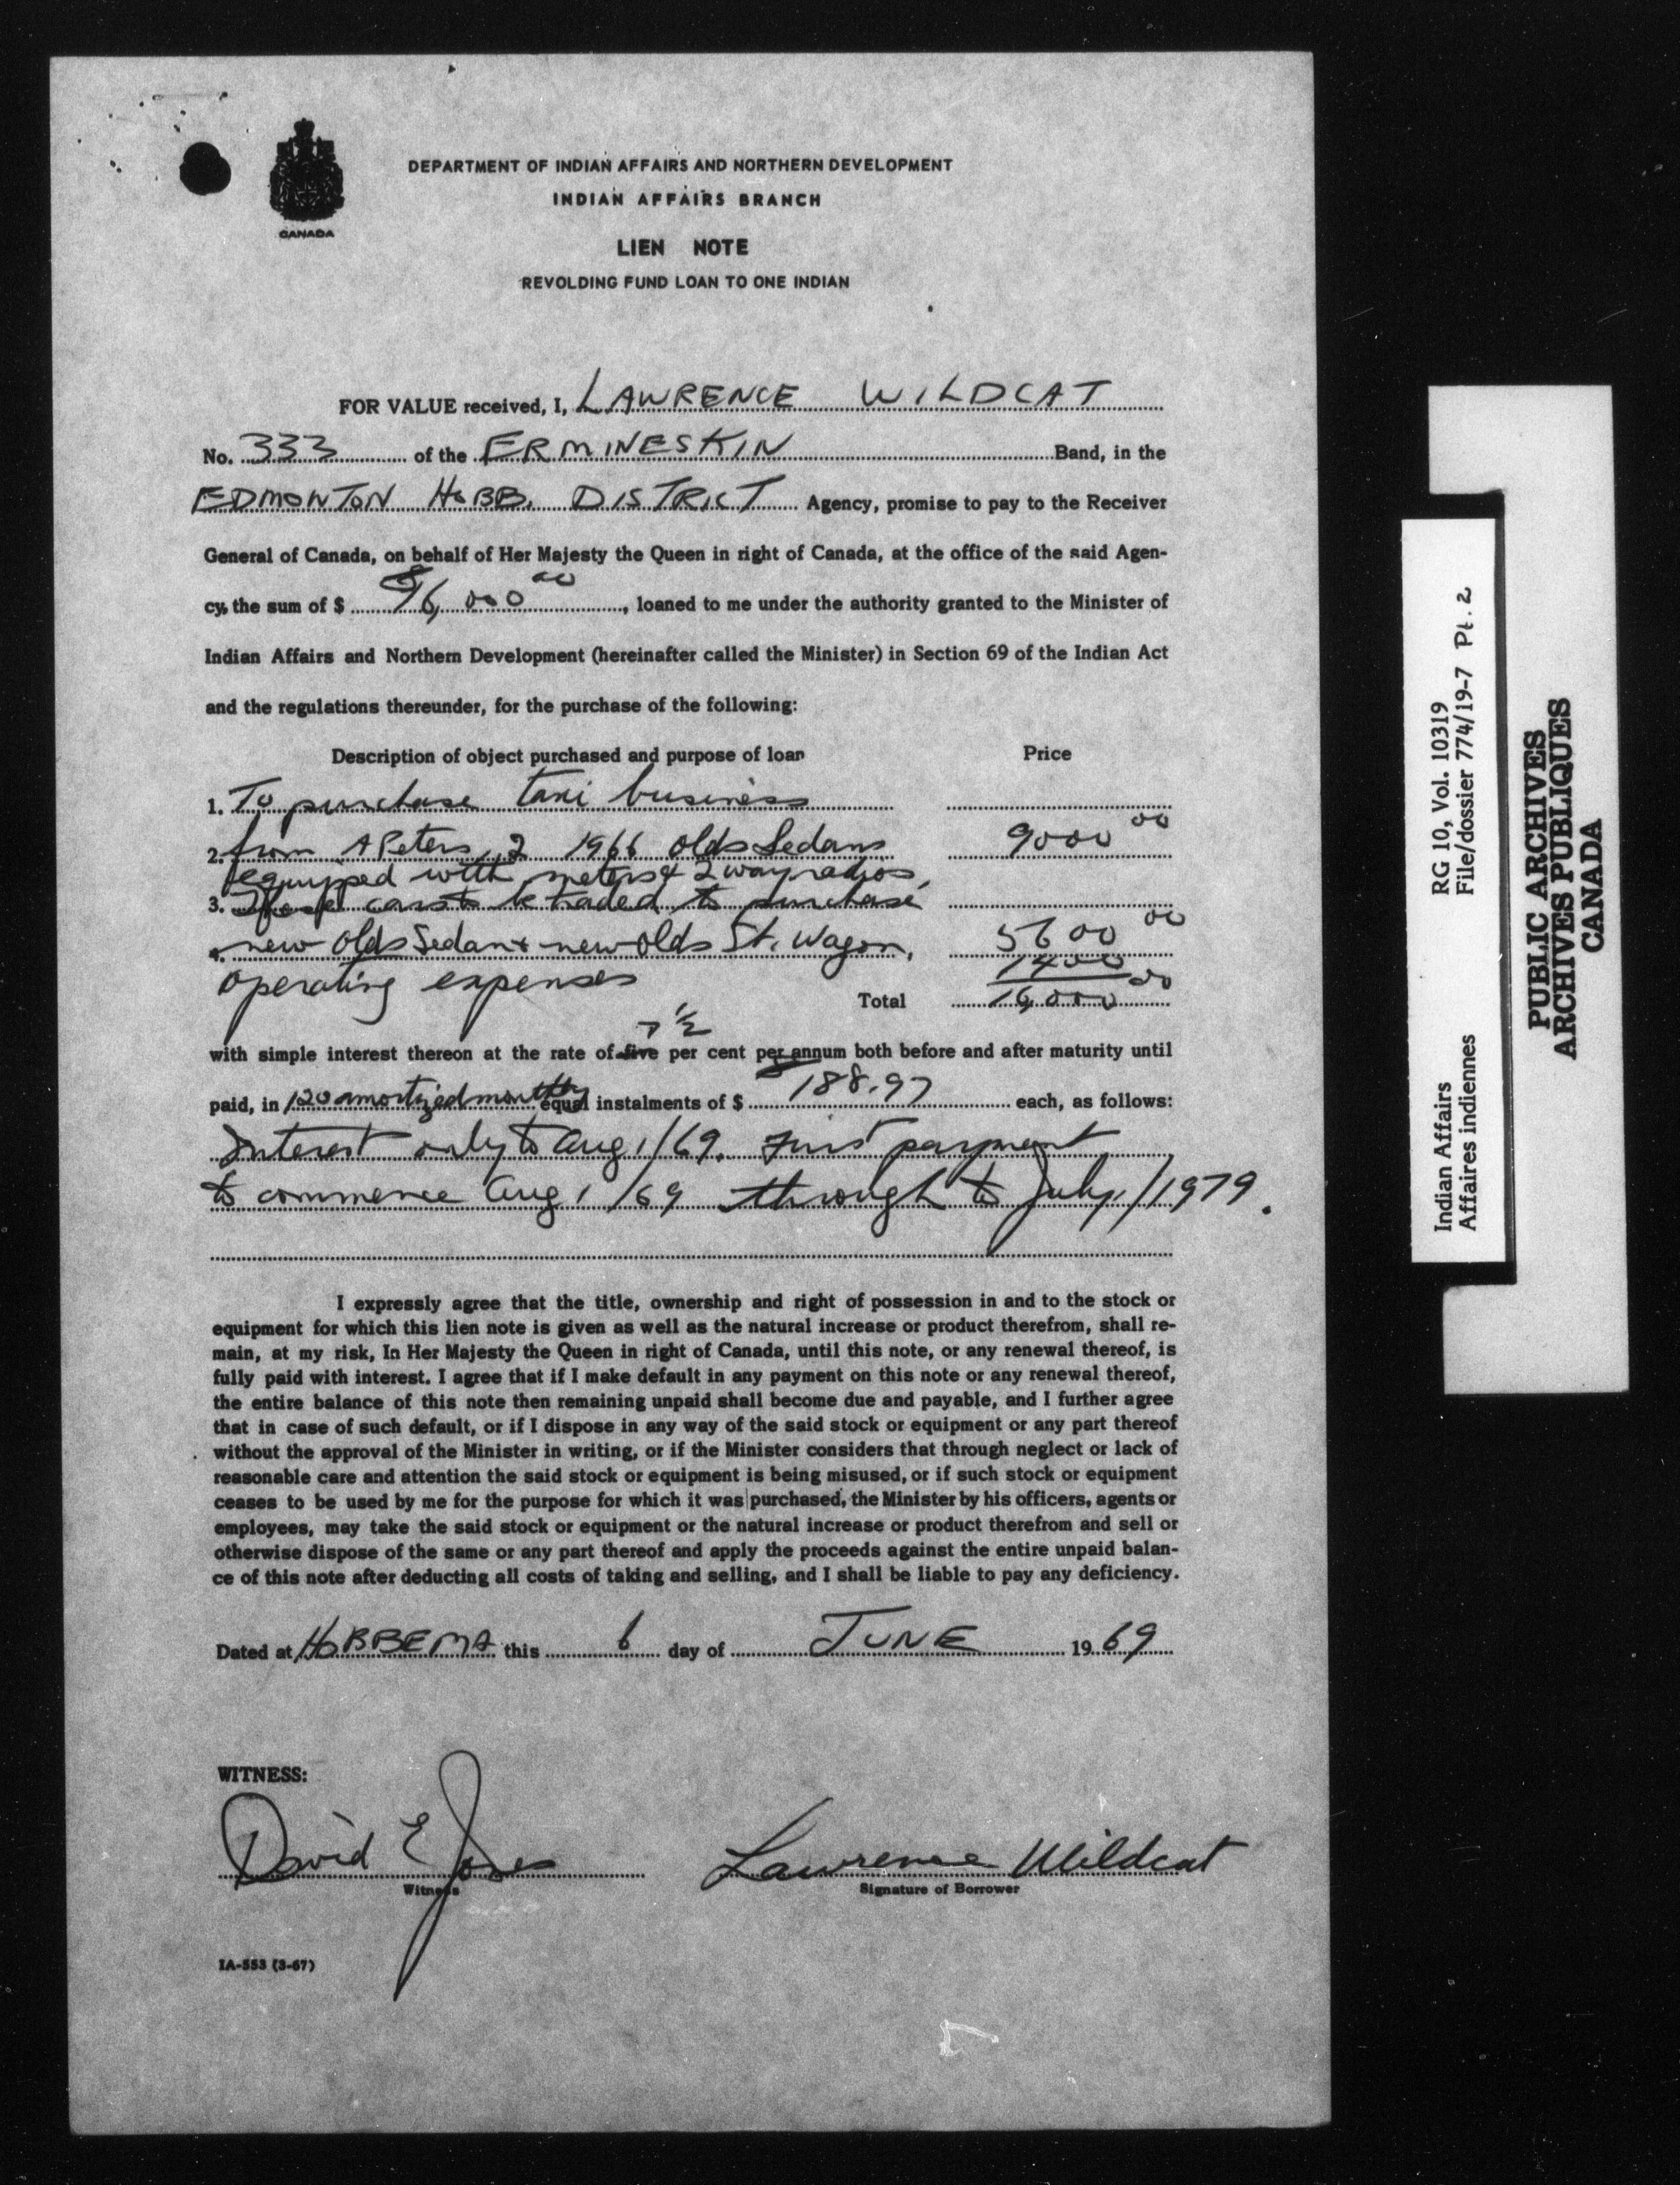 CANADA
DEPARTMENT OF INDIAN AFFAIRS AND NORTHERN DEVELOPMENT
INDIAN AFFAIRS BRANCH
LIEN NOTE
REVOLDING FUND LOAN TO ONE INDIAN
FOR VALUE received, I, LAWRENCE WILDCAT
No. 333 of the ERMINESKIN Band, in the
EDMONTON HOBB. DISTRICT Agency, promise to pay to the Receiver
General of Canada, on behalf of Her Majesty the Queen in right of Canada, at the office of the said Agen-
cy, the sum of $ 16,000 00, loaned to me under the authority granted to the Minister of
Indian Affairs and Northern Development (hereinafter called the Minister) in Section 69 of the Indian Act
and the regulations thereunder, for the purchase of the following:
Description of object purchased and purpose of loan Price
1. To purchase taxi business
2. from A Peters, 2 1966 Olds Sedans 9000 00
equipped with meters & 2 way radios,
3. These cars to be traded to purchase
4. new Olds Sedan & new Olds St. Wagon, 5600 00
operating expenses 1400
Total 16,000 00
7 1/2
with simple interest thereon at the rate of five per cent per annum both before and after maturity until
paid, in 120 amortized monthly equal instalments of $ 188.97 each, as follows:
Interest only to Aug 1/69. First payment
to commence Aug 1/69 through to July 1/1979.
I expressly agree that the title, ownership and right of possession in and to the stock or
equipment for which this lien note is given as well as the natural increase or product therefrom, shall re-
main, at my risk, In Her Majesty the Queen in right of Canada, until this note, or any renewal thereof, is
fully paid with interest. I agree that if I make default in any payment on this note or any renewal thereof,
the entire balance of this note then remaining unpaid shall become due and payable, and I further agree
that in case of such default, or if I dispose in any way of the said stock or equipment or any part thereof
without the approval of the Minister in writing, or if the Minister considers that through neglect or lack of
reasonable care and attention the said stock or equipment is being misused, or if such stock or equipment
ceases to be used by me for the purpose for which it was purchased, the Minister by his officers, agents or
employees, may take the said stock or equipment or the natural increase or product therefrom and sell or
otherwise dispose of the same or any part thereof and apply the proceeds against the entire unpaid balan-
ce of this note after deducting all costs of taking and selling, and I shall be liable to pay any deficiency.
Dated at HOBBEMA this 6 day of JUNE 1969
WITNESS:
David E Jones Lawrence Wildcat
Witness Signature of Borrower
IA-553 (3-67)
Indian Affairs RG 10, Vol. 10319
Affaires indiennes File/dossier 774/19-7 Pt. 2
PUBLIC ARCHIVES
ARCHIVES PUBLIQUES
CANADA